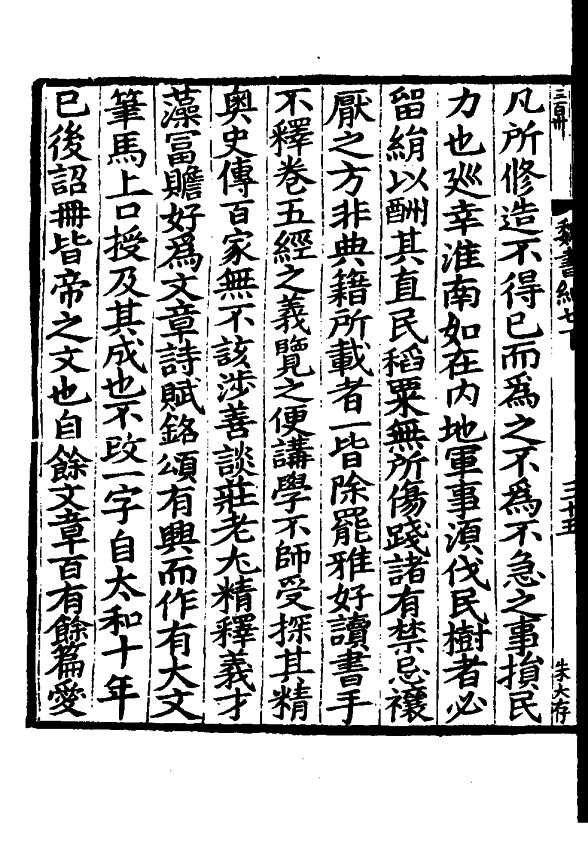 凡所修造不得已而爲之不爲不急之事損民
力也廵幸淮南如在内地軍事湏伐民樹者必
留絹以酬其直民稻粟無所傷踐諸有禁忌禳
厭之方非典籍所載者一皆除罷雅好讀書手
不釋卷五經之義覽之便講學不師受探其精
奥史傳百家無不該涉善談莊老尤精釋義才
藻冨贍好爲文章詩賦銘頌有興而作有大文
筆馬上口授及其成也不攺一字自太和十年
已後詔冊皆帝之文也自餘文章百有餘篇愛
魏書紀七下
二十五
朱大存